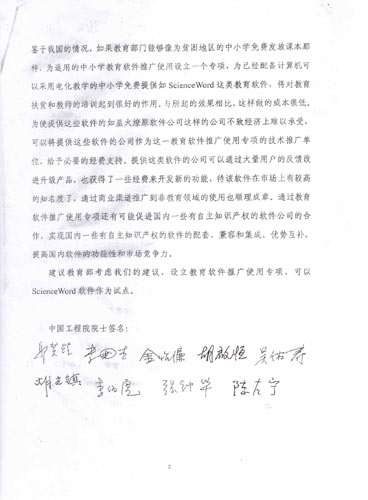 鉴于我国的情况，如果教育部门能够像为贫困地区的中小学免费发放课本那
样，为适用的中小学教育软件推广使用设立一个专项，为已经配备计算机可
以采用电化教学的中小学免费提供如 ScienceWord 这类教育软件，将对教育
扶贫和教师的培训起到很好的作用。与所起的效果相比，这样做的成本很低。
为使提供这些软件的如星火燎原软件公司这样的公司不致经济上难以承受，
可以将提供这些软件的公司作为这一教育软件推广使用专项的技术推广单
位，给予必要的经费支持。提供这类软件的公司可以通过大量用户的反馈改
进升级产品，也获得了一些经费来开发新的功能，待该软件在市场上有较高
的知名度了，通过商业渠道推广到非教育领域的使用也顺理成章。通过教育
软件推广使用专项还有可能促进国内一些有自主知识产权的软件公司的合
作，实现国内一些有自主知识产权的软件的配套、兼容和集成，优势互补，
提高国内软件的功能性和市场竞争力。
建议教育部考虑我们的建议，设立教育软件推广使用专项，可以
ScienceWord 软件作为试点。
中国工程院院士签名：
金怡濂 胡启恒
陈左宁
2